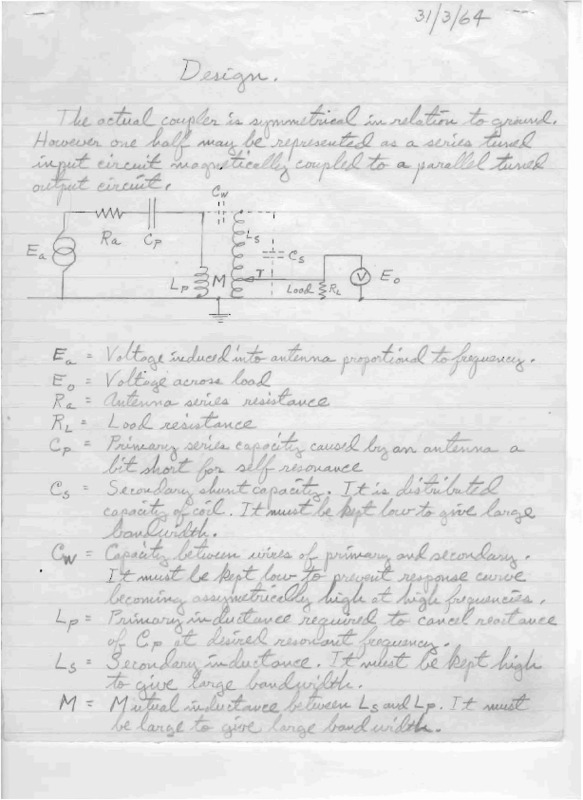 31/3/64
Design.
The actual coupler is symmetrical in relation to ground.
However one half may be represented as a series tuned
input circuit magnetically coupled to a parallel tuned
output circuit.
Cw
Ra
Cp
Ls
Ea
Cs
Lp
M
T
Load
RL
V
Eo
Ea = Voltage induced into antenna proportional to frequency.
Eo = Voltage across load
Ra = Antenna series resistance
RL = Load resistance
Cp = Primary series capacity caused by an antenna a
bit short for self resonance
Cs = Secondary shunt capacity. It is distributed
capacity of coil. It must be kept low to give large
bandwidth.
Cw = Capacity between wires of primary and secondary.
It must be kept low to prevent response curve
becoming assymetrically high at high frequencies.
Lp = Primary inductance required to cancel reactance
of Cp at desired resonant frequency.
Ls = Secondary inductance. It must be kept high
to give large bandwidth.
M = Mutual inductance between Ls and Lp. It must
be large to give large bandwidth.